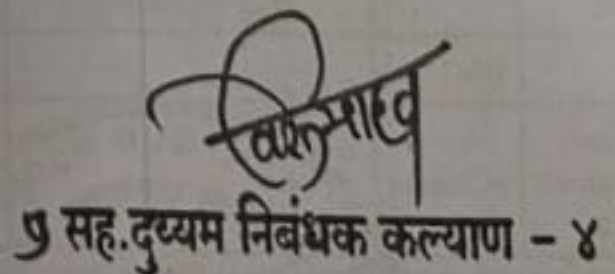 प्र सह.दुय्यम निबंधक कल्याण - ४